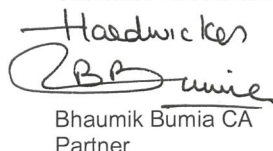 Hardwickes
BBumia
Bhaumik Bumia CA
Partner